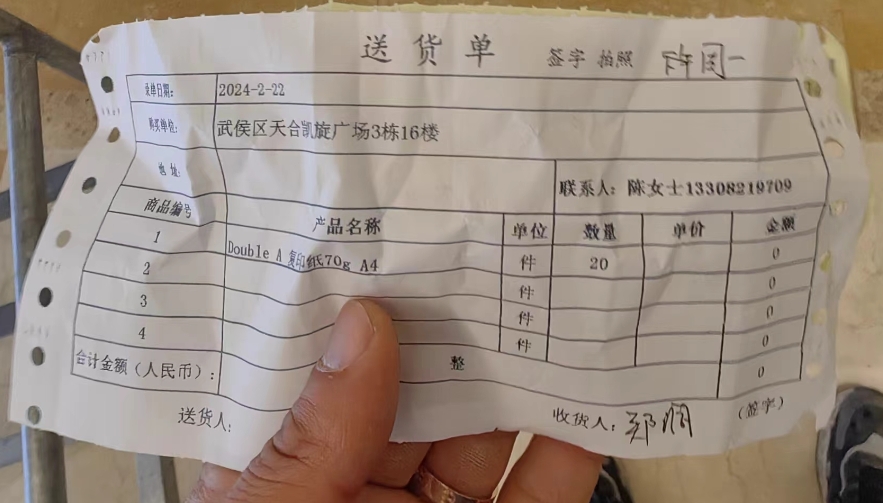 送货单
签字 拍照
录单日期: 2024-2-22
购买单位: 武侯区天合凯旋广场3栋16楼
地 址:
联系人: 陈女士13308219709
商品编号 产品名称 单位 数量 单价 金额
1 Double A 复印纸70g A4 件 20 0
2 件 0
3 件 0
4 件 0
合计金额（人民币）: 整 0
送货人: 收货人: 郑 (签字)